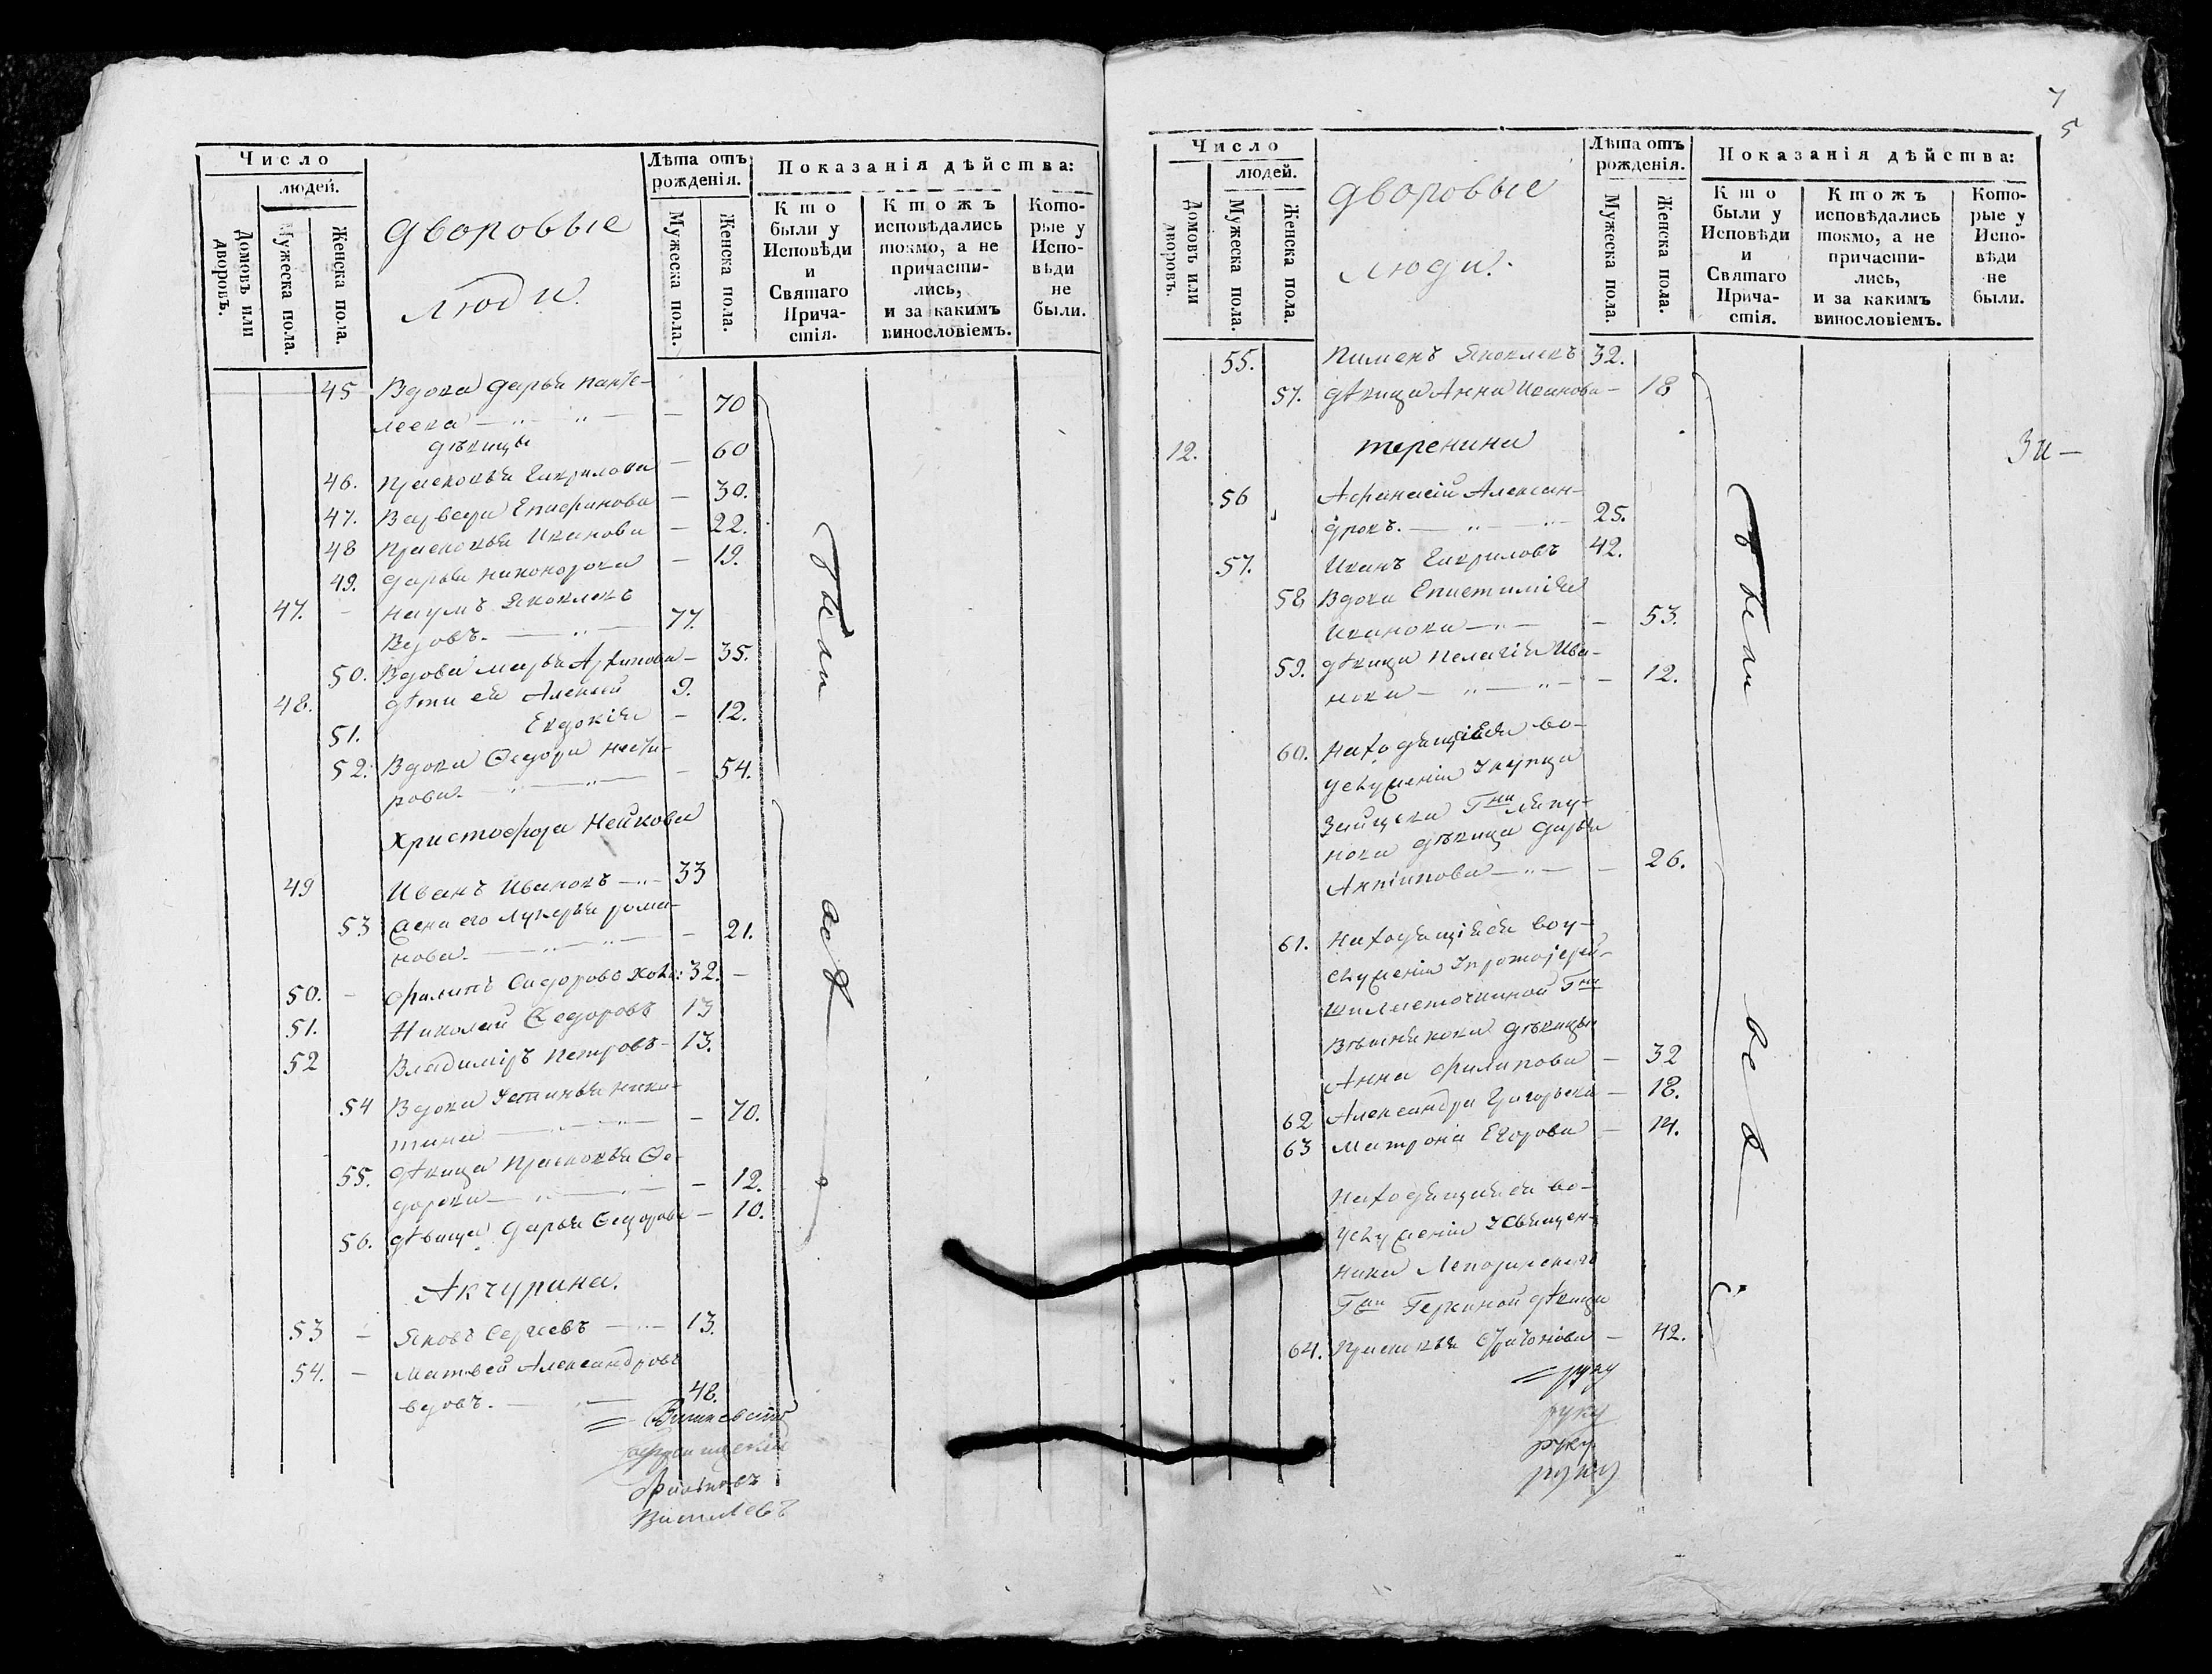 Число
людей.
Домовъ или дворовъ.
Мужеска пола.
Женска пола.
дворовые
люди.
Лѣта отъ
рожденія.
Мужеска пола.
Женска пола.
Показанія дѣйства:
Кто
были у
Исповѣди
и
Святаго
Прича-
стія.
Ктожъ
исповѣдались
токмо, а не
причасти-
лись,
и за какимъ
винословіемъ.
Кото-
рые у
Испо-
вѣди
не
были.
45 Вдова Дарья Панте-
леева — 70
дѣвицы
46. Прасковья Гаврилова — 60
47. Варвара Епифанова — 30.
48 Прасковья Иванова — 22.
49. Дарья Никонорова — 19.
47. — Наумъ Яковлевъ
вдовъ. — 77.
50. Вдова Марья Архипова — 35.
48. дѣти ея Алексей 9.
51. Евдокія — 12.
52. Вдова Ѳедора
рова. — 54.
Христофора Нейкова
49 Иванъ Ивановъ — 33
53 жена его Лукерья Рома-
нова. — 21.
50. — Филипъ Сидоровъ хол: 32. —
51. Николай Ѳедоровъ 13
52 Владиміръ Петровъ — 13.
54 Вдова Устинья Ники-
тина — 70.
55. дѣвица Прасковья Ѳе-
дорова — 12.
56. дѣвица Дарья Ѳедорова — 10.
Акчурина.
53 — Яковъ Сергеевъ — 13.
54. — Матвей Александровъ
вдовъ. — 48.
были
всѣ
7
5
Число
людей.
Домовъ или дворовъ.
Мужеска пола.
Женска пола.
дворовые
люди.
Лѣта отъ
рожденія.
Мужеска пола.
Женска пола.
Показанія дѣйства:
Кто
были у
Исповѣди
и
Святаго
Прича-
стія.
Ктожъ
исповѣдались
токмо, а не
причасти-
лись,
и за какимъ
винословіемъ.
Кото-
рые у
Испо-
вѣди
не
были.
55. Пименъ Яковлевъ 32.
57. дѣвица Анна Иванова — 18
12. Теренина
56 Афанасій Алексан-
дровъ. — 25.
57. Иванъ Гавриловъ 42.
58 Вдова Епистимія
Иванова — 53.
59. дѣвица Пелагія Ива-
нова — 12.
60. Находящіяся во-
услуженіи у купца
Зайцева Гжи
нова дѣвица Дарья
Антипова — 26.
61. Находящіяся воу-
служеніи у протоіерей-
ши Ласточкиной Гжи
дѣвицы
Анна Филипова — 32
62 Александра Григорьева — 18.
63 Матрона Егорова — 14.
Находящіяся во-
услуженіи у священ-
ника
Гжи дѣвица
64. Прасковья — 42.
руку
руку
руку
руку
были
всѣ